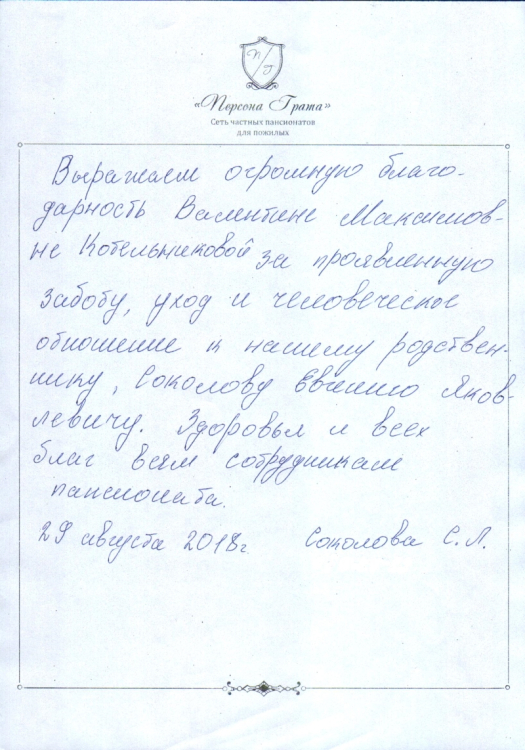 П/Г
«Персона Грата»
Сеть частных пансионатов
для пожилых
Выражаем огромную благо-
дарность Валентине Максимов-
не Котельниковой за проявленную
заботу, уход и человеческое
отношение к нашему родствен-
нику, Соколову Евгению Яков-
левичу. Здоровья и всех
благ всем сотрудникам
пансионата.
29 августа 2018г. Соколова С.Л.